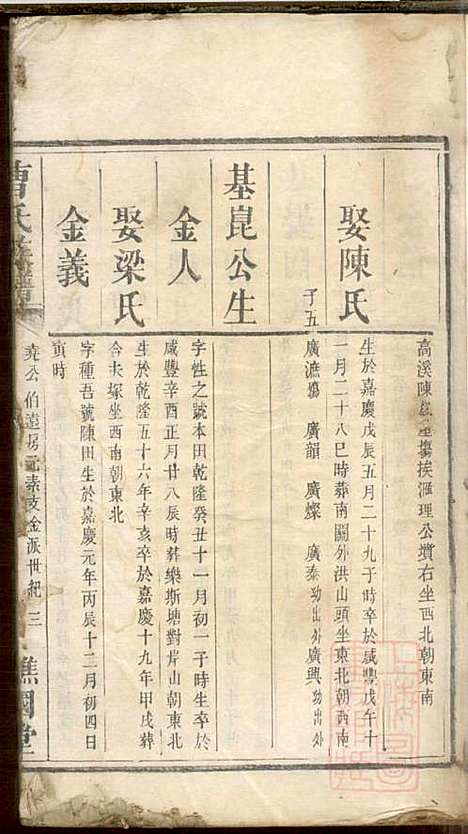 高溪陳
塲挨滙理公墳右坐西北朝東南
娶陳氏
生於嘉慶戊辰五月二十九子時卒於咸豐戊午十
一月二十八巳時葬南關外洪山頭坐東北朝西南
子五
廣瀌
廣韻
廣燦
廣泰幼出外
廣興幼出外
基崑公生
金人
字性之號本田乾隆癸丑十一月初一子時生卒於
咸豐辛酉正月廿八辰時葬樂斯塘對岸山朝東北
娶梁氏
生於乾隆五十六年辛亥卒於嘉慶十九年甲戌葬
合夫塚坐西南朝東北
金義
字種吾號陳田生於嘉慶元年丙辰十二月初四日
寅時
曹氏族譜
堯公
伯達房元素支金派世紀
三
譙國堂